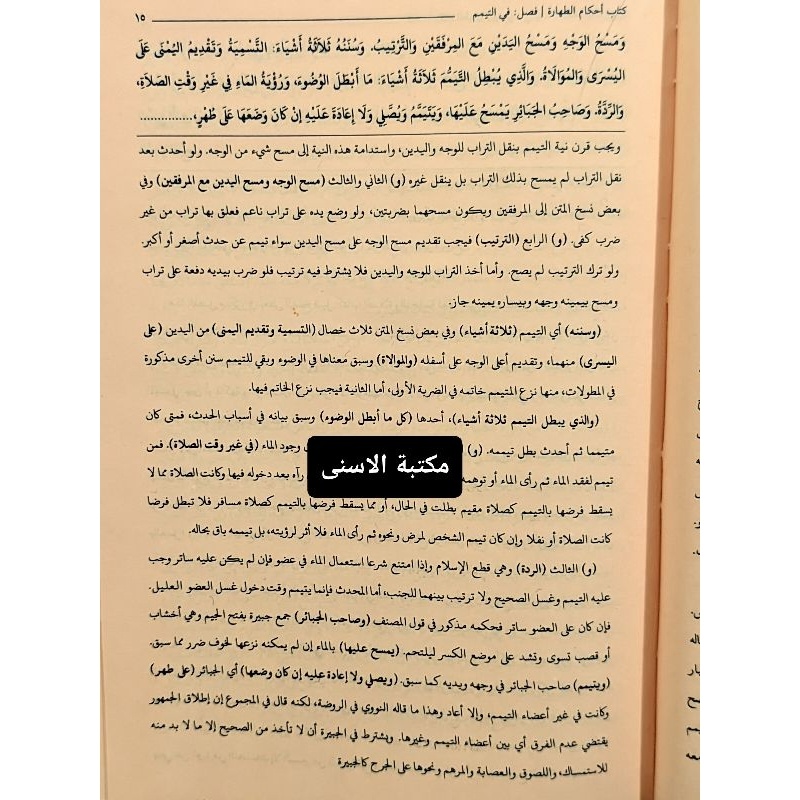 كتاب أحكام الطهارة | فصل: في التيمم ١٥
وَمَسْحُ الوَجْهِ وَمَسْحُ اليَدَيْنِ مَعَ المِرْفَقَيْنِ وَالتَّرْتِيبُ. وَسُنَنُهُ ثَلَاثَةُ أَشْيَاءَ: التَّسْمِيَةُ وَتَقْدِيمُ اليُمْنَى عَلَى
اليُسْرَى وَالمُوَالَاةُ. وَالَّذِي يُبْطِلُ التَّيَمُّمَ ثَلَاثَةُ أَشْيَاءَ: مَا أَبْطَلَ الوُضُوءَ، وَرُؤْيَةُ المَاءِ فِي غَيْرِ وَقْتِ الصَّلَاةِ،
وَالرِّدَّةُ. وَصَاحِبُ الجَبَائِرِ يَمْسَحُ عَلَيْهَا، وَيَتَيَمَّمُ وَيُصَلِّي وَلَا إِعَادَةَ عَلَيْهِ إِنْ كَانَ وَضَعَهَا عَلَى طُهْرٍ،...............
ويجب قرن نية التيمم بنقل التراب للوجه واليدين، واستدامة هذه النية إلى مسح شيء من الوجه. ولو أحدث بعد
نقل التراب لم يمسح بذلك التراب بل ينقل غيره (و) الثاني والثالث (مسح الوجه ومسح اليدين مع المرفقين) وفي
بعض نسخ المتن إلى المرفقين ويكون مسحهما بضربتين، ولو وضع يده على تراب ناعم فعلق بها تراب من غير
ضرب كفى. (و) الرابع (الترتيب) فيجب تقديم مسح الوجه على مسح اليدين سواء تيمم عن حدث أصغر أو أكبر.
ولو ترك الترتيب لم يصح. وأما أخذ التراب للوجه واليدين فلا يشترط فيه ترتيب فلو ضرب بيديه دفعة على تراب
ومسح بيمينه وجهه وبيساره يمينه جاز.
(وسننه) أي التيمم (ثلاثة أشياء) وفي بعض نسخ المتن ثلاث خصال (التسمية وتقديم اليمنى) من اليدين (على
اليسرى) منهما، وتقديم أعلى الوجه على أسفله (والموالاة) وسبق معناها في الوضوء وبقي للتيمم سنن أخرى مذكورة
في المطولات، منها نزع المتيمم خاتمه في الضربة الأولى، أما الثانية فيجب نزع الخاتم فيها.
(والذي يبطل التيمم ثلاثة أشياء)، أحدها (كل ما أبطل الوضوء) وسبق بيانه في أسباب الحدث، فمتى كان
متيمما ثم أحدث بطل تيممه. (و) وجود الماء (في غير وقت الصلاة). فمن
تيمم لفقد الماء ثم رأى الماء أو توهمه رآه بعد دخوله فيها وكانت الصلاة مما لا
مكتبة الاسنى
يسقط فرضها بالتيمم كصلاة مقيم بطلت في الحال، أو مما يسقط فرضها بالتيمم كصلاة مسافر فلا تبطل فرضا
كانت الصلاة أو نفلا وإن كان تيمم الشخص لمرض ونحوه ثم رأى الماء فلا أثر لرؤيته، بل تيممه باق بحاله.
(و) الثالث (الردة) وهي قطع الإسلام وإذا امتنع شرعا استعمال الماء في عضو فإن لم يكن عليه ساتر وجب
عليه التيمم وغسل الصحيح ولا ترتيب بينهما للجنب، أما المحدث فإنما يتيمم وقت دخول غسل العضو العليل.
فإن كان على العضو ساتر فحكمه مذكور في قول المصنف (وصاحب الجبائر) جمع جبيرة بفتح الجيم وهي أخشاب
أو قصب تسوى وتشد على موضع الكسر ليلتحم. (يمسح عليها) بالماء إن لم يمكنه نزعها لخوف ضرر مما سبق.
(ويتيمم) صاحب الجبائر في وجهه ويديه كما سبق. (ويصلي ولا إعادة عليه إن كان وضعها) أي الجبائر (على طهر)
وكانت في غير أعضاء التيمم، وإلا أعاد وهذا ما قاله النووي في الروضة، لكنه قال في المجموع إن إطلاق الجمهور
يقتضي عدم الفرق أي بين أعضاء التيمم وغيرها. ويشترط في الجبيرة أن لا تأخذ من الصحيح إلا ما لا بد منه
للاستمساك، واللصوق والعصابة والمرهم ونحوها على الجرح كالجبيرة